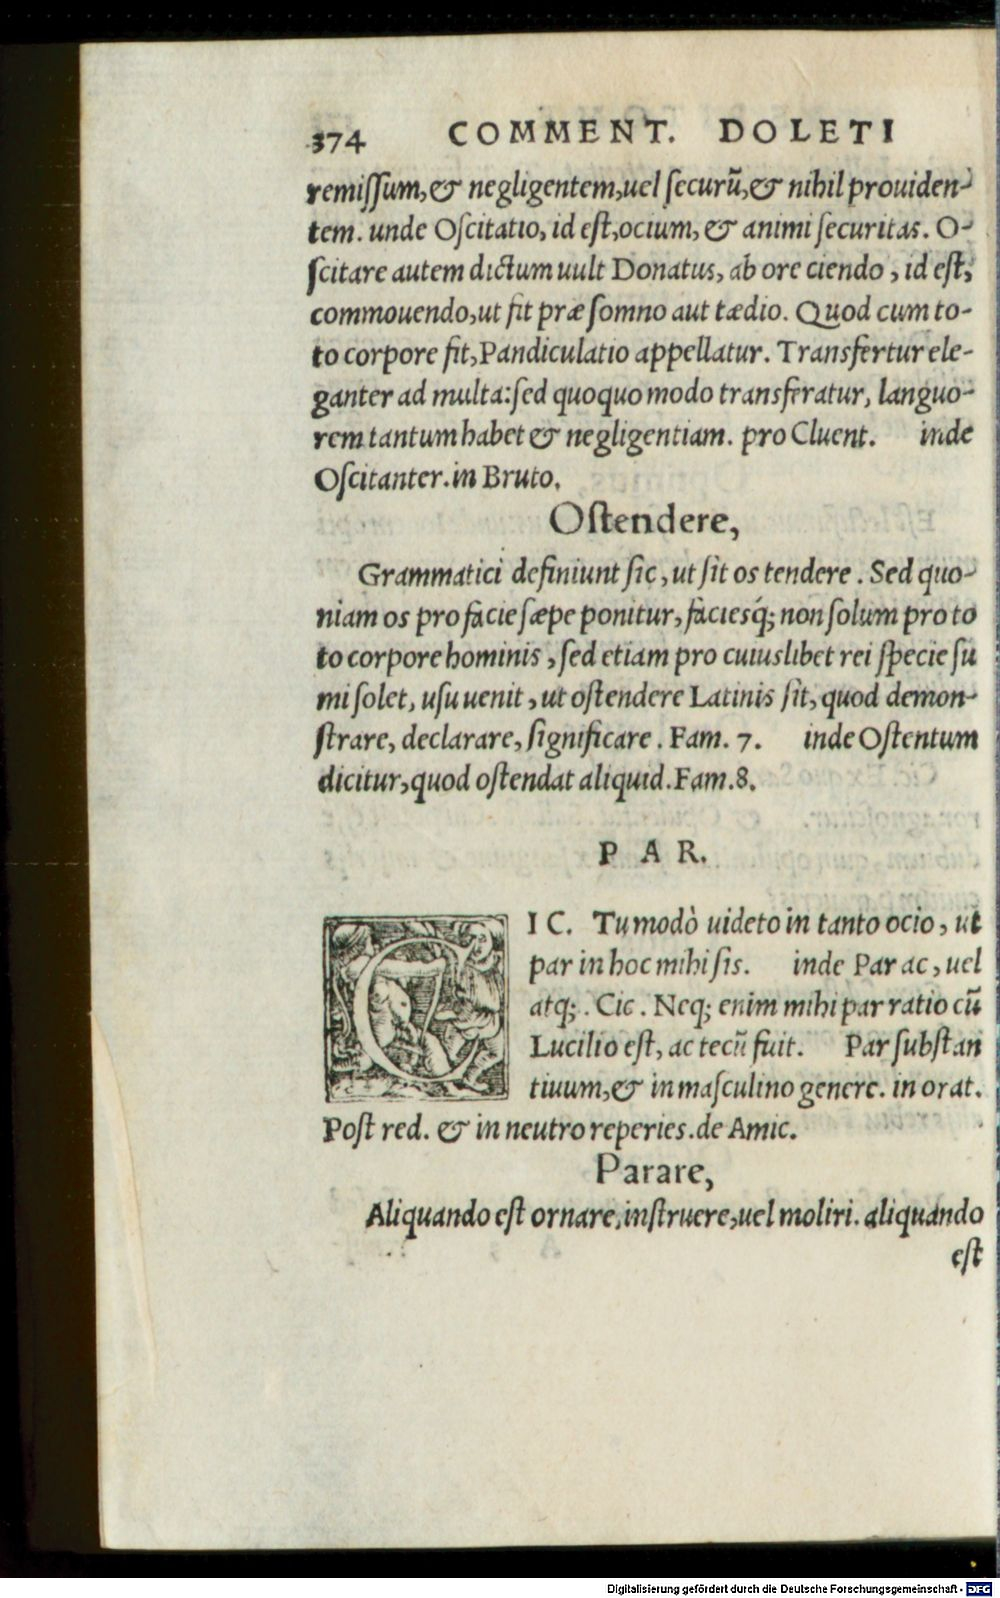 374 COMMENT. DOLETI
remiſſum,& negligentem,uel ſecurũ,& nihil prouiden-
tem. unde Oſcitatio, id eſt,ocium, & animi ſecuritas. O-
ſcitare autem dictum uult Donatus, ab ore ciendo , id eſt,
commouendo,ut fit præ ſomno aut tædio. Quod cum to-
to corpore fit,Pandiculatio appellatur. Transfertur ele-
ganter ad multa:ſed quoquo modo transferatur, languo-
rem tantum habet & negligentiam. pro Cluent. inde
Oſcitanter.in Bruto.
Oſtendere,
Grammatici definiunt ſic, ut ſit os tendere . Sed quo-
niam os pro facie ſæpe ponitur, faciesq́; non ſolum pro to
to corpore hominis , ſed etiam pro cuiuslibet rei ſpecie ſu
mi ſolet, uſu uenit , ut oſtendere Latinis ſit, quod demon-
ſtrare, declarare, ſignificare . Fam. 7. inde Oſtentum
dicitur,quod oſtendat aliquid.Fam.8.
P A R.
CIC. Tu modò uideto in tanto ocio , ut
par in hoc mihi ſis. inde Par ac , uel
atq; . Cic . Neq; enim mihi par ratio cũ
Lucilio eſt, ac tecũ fuit. Par ſubſtan
tiuum,& in maſculino genere. in orat.
Poſt red. & in neutro reperies.de Amic.
Parare,
Aliquando eſt ornare,inſtruere,uel moliri. aliquando
eſt
Digitalisierung gefördert durch die Deutsche Forschungsgemeinschaft - DFG